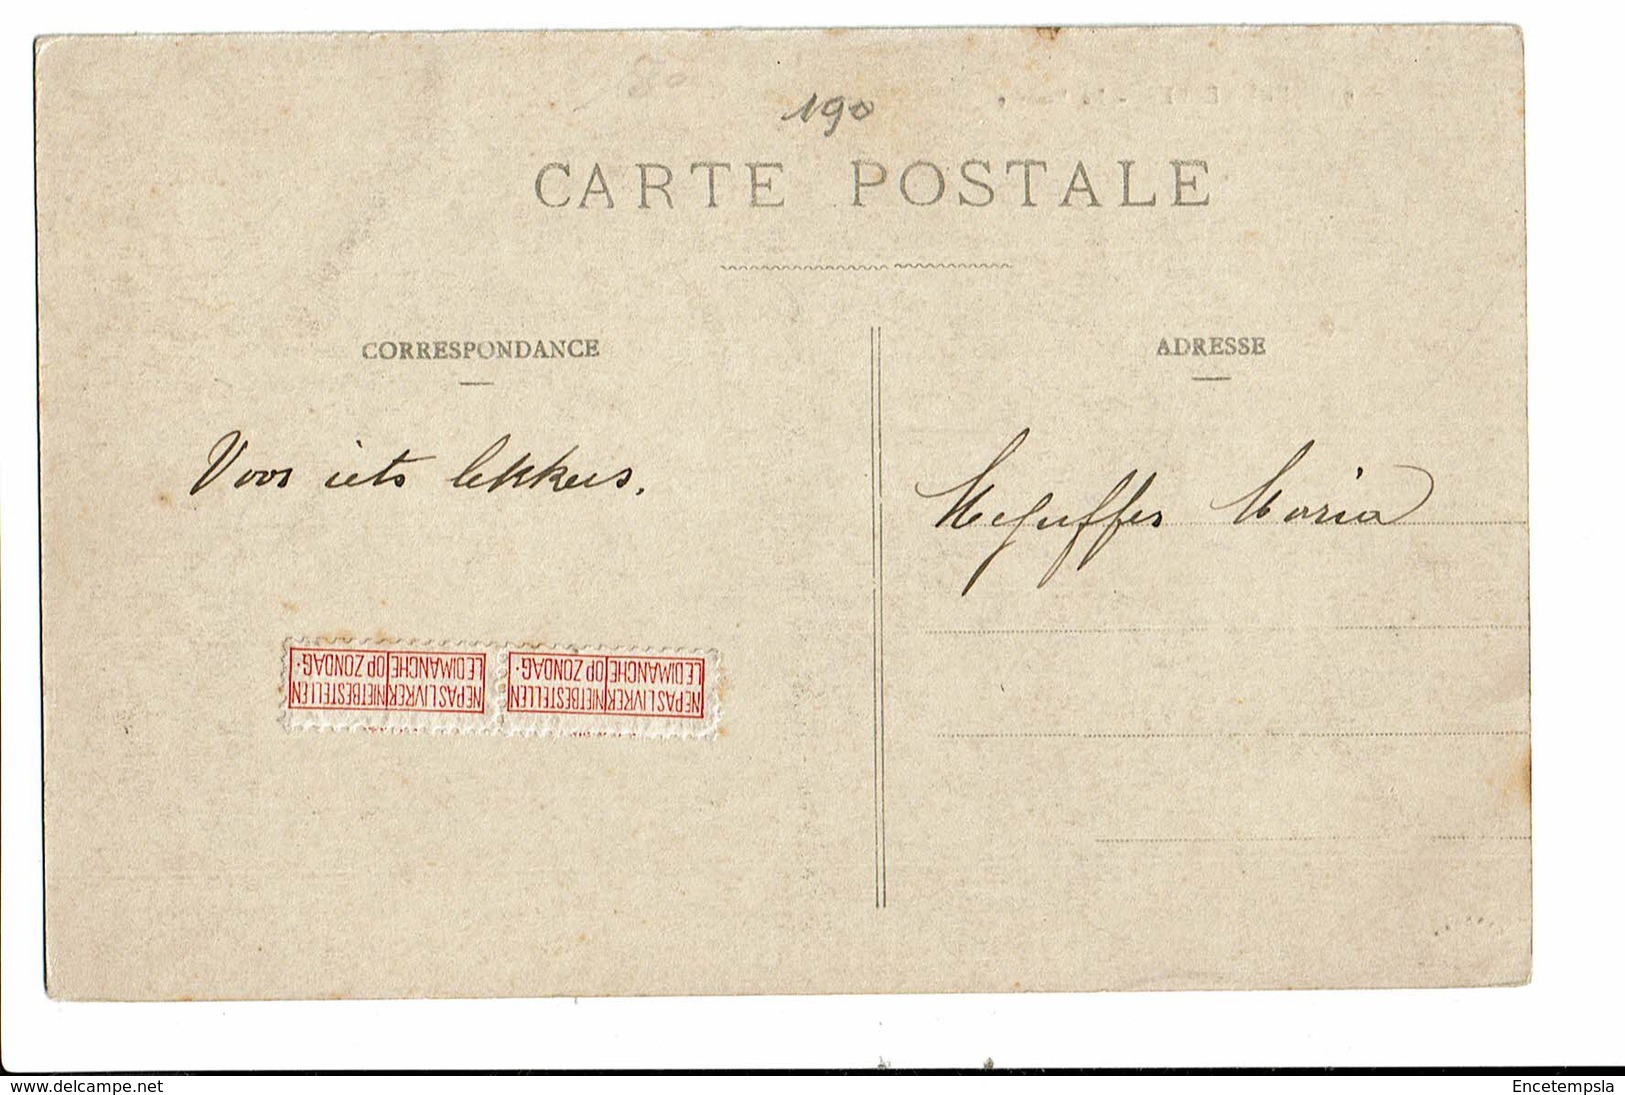 190
CARTE POSTALE
CORRESPONDANCE
Voor iets lekkers.
NE PAS LIVRER NIET BESTELLEN
LE DIMANCHE OP ZONDAG.
NE PAS LIVRER NIET BESTELLEN
LE DIMANCHE OP ZONDAG.
ADRESSE
Maria
www.delcampe.net
Encetempsla